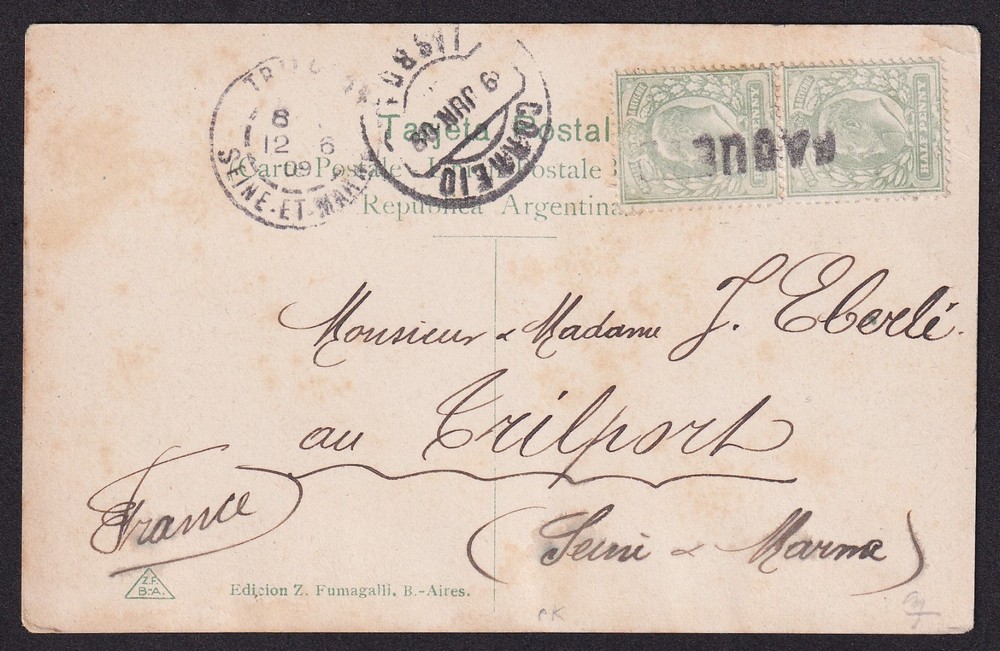 TRILPORT
8
12 6
09
SEINE-ET-MARNE
LISBOA
9 JUN 09
CORREIO
PAQUE
HALFPENNY
HALFPENNY
Tarjeta Postal
Carte Postale
Postale
República Argentina
Monsieur & Madame J. Eberlé.
au Trilport
France
(Seine & Marne)
Z.F.
B-A.
Edicion Z. Fumagalli, B.-Aires.